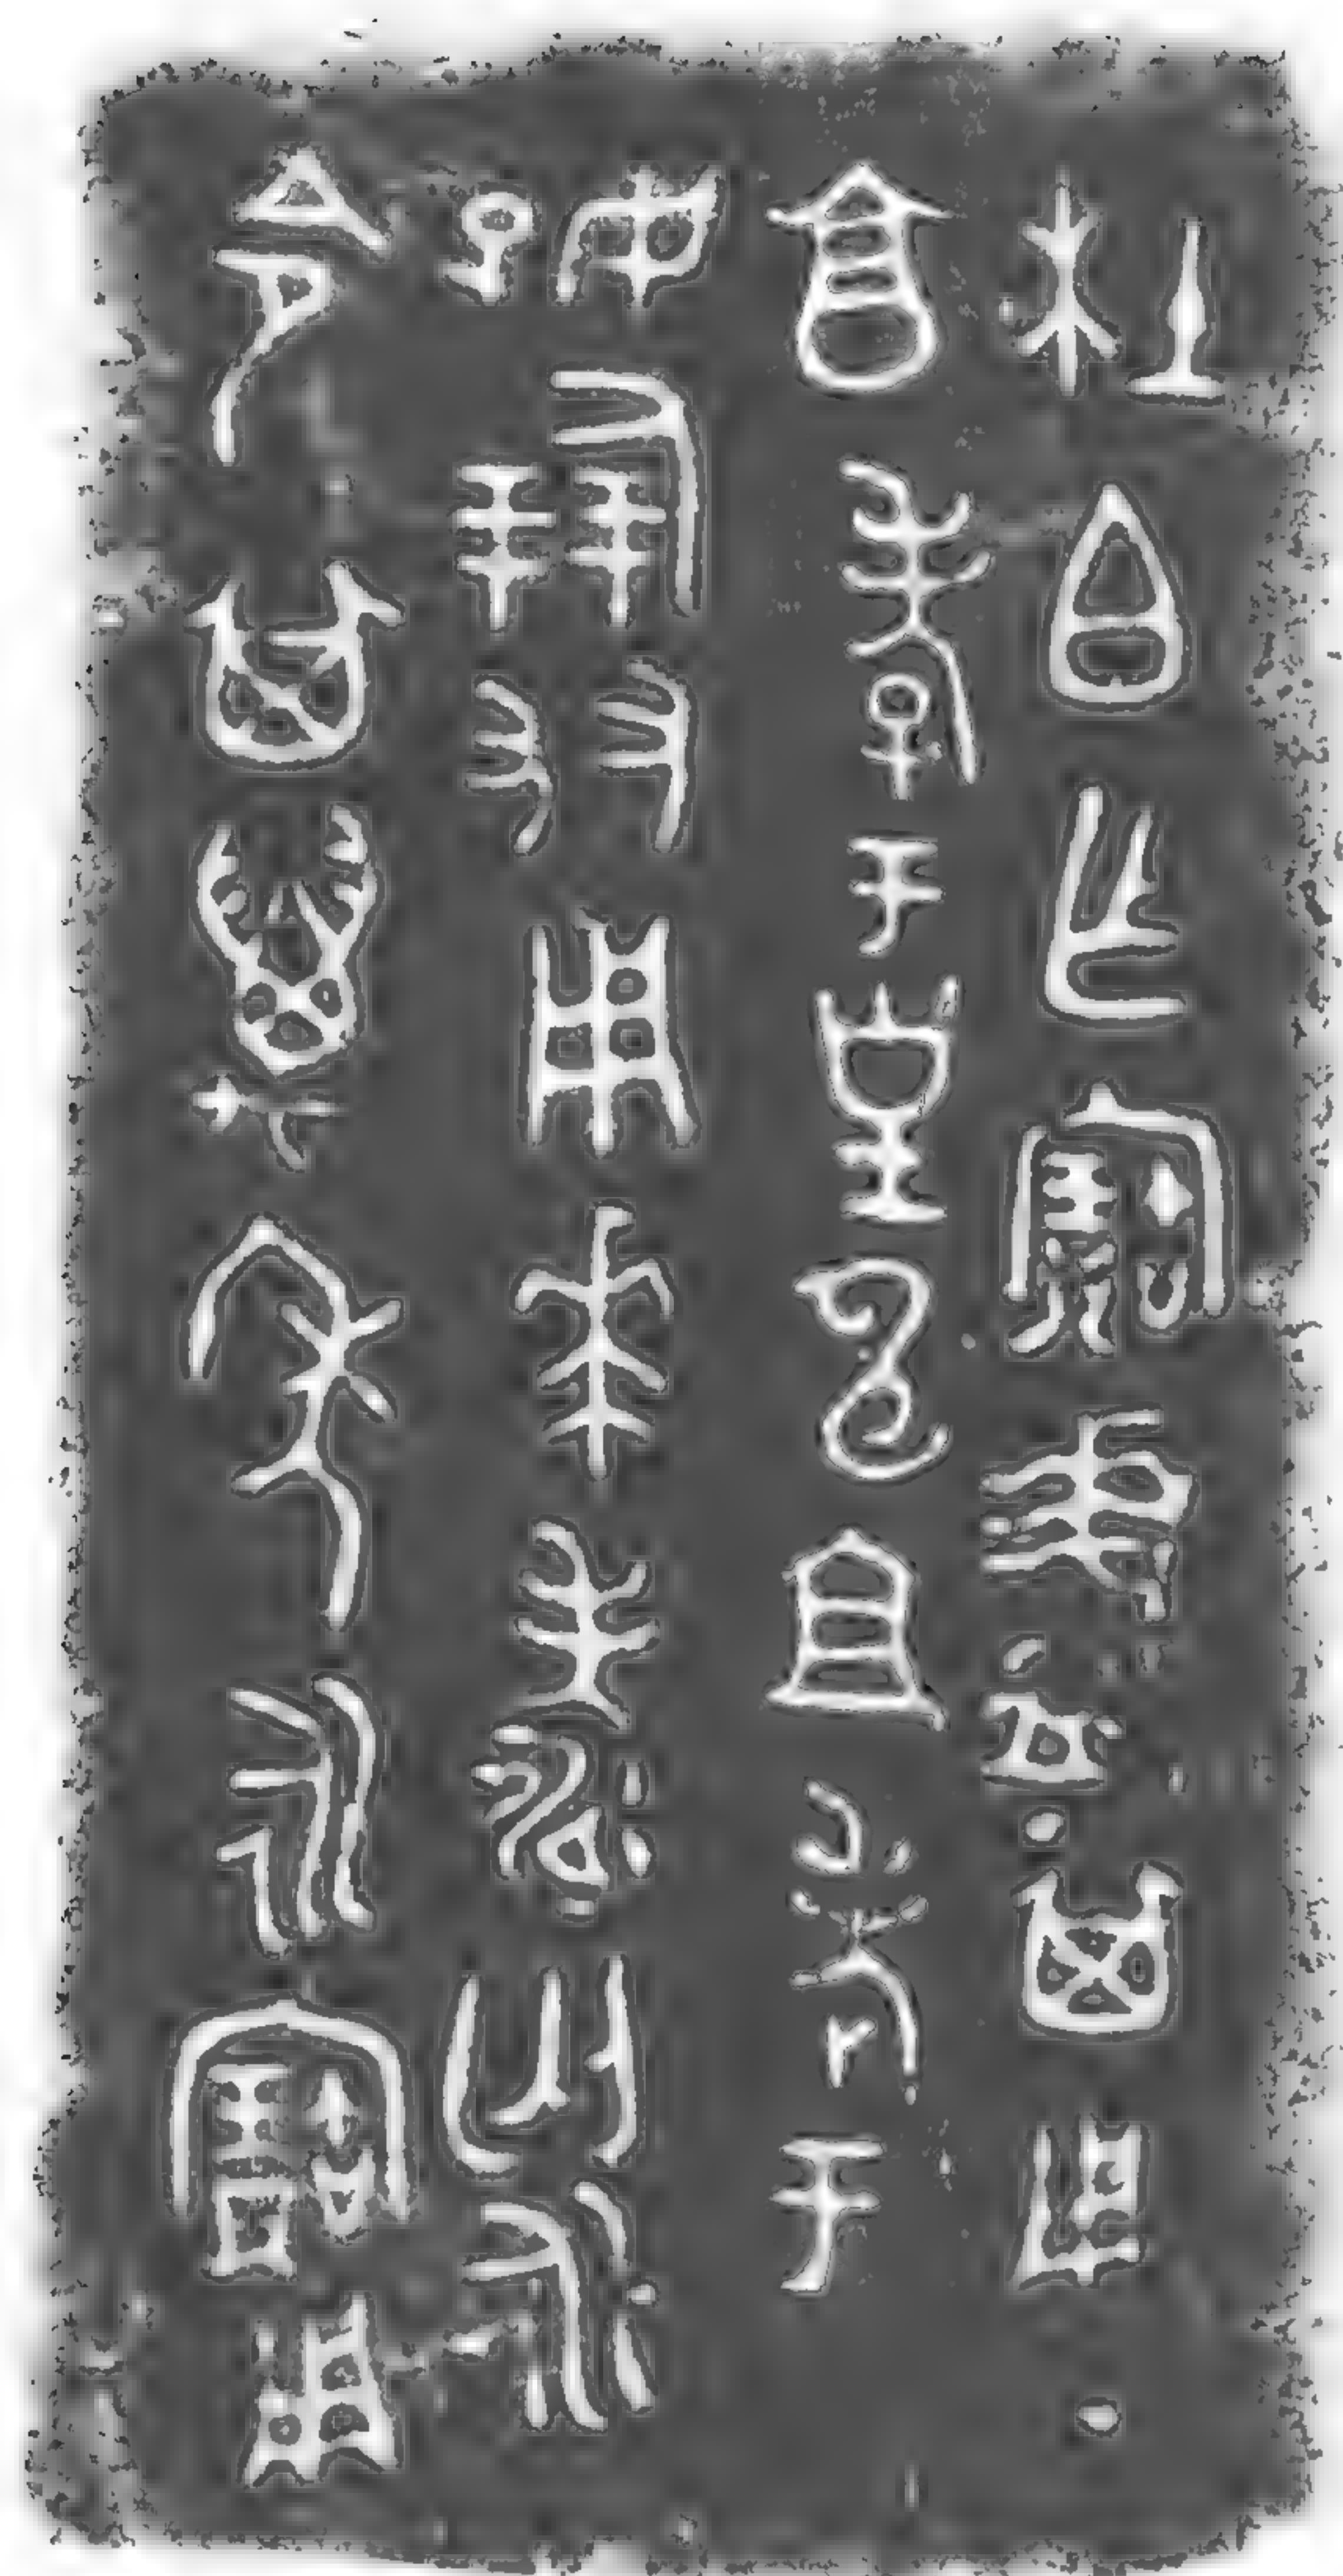 杜白乍寶盨其用
亯孝于皇申且考于
好倗友用𠦪壽匄永
令其萬年永寶用